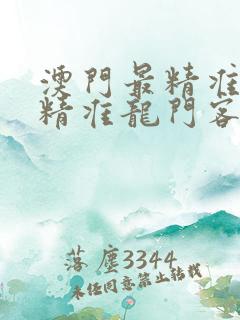 澳門最精准
精准龍門客
落塵3344
未经同意禁止转载